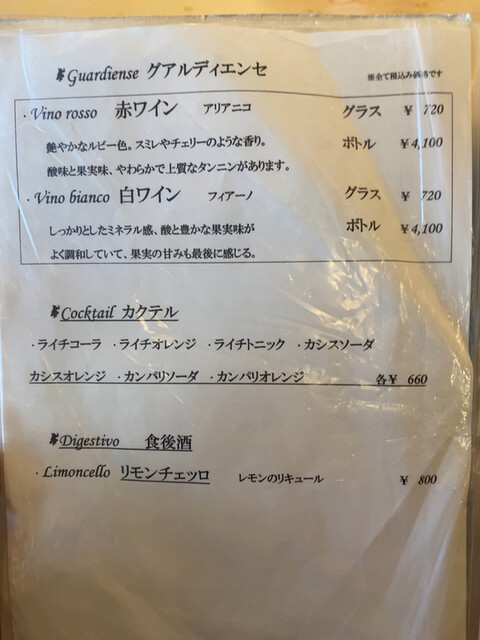 Guardiense グアルディエンセ ※全て税込み価格です
・Vino rosso 赤ワイン アリアニコ グラス ¥ 720
艶やかなルビー色。スミレやチェリーのような香り。 ボトル ¥4,100
酸味と果実味、やわらかで上質なタンニンがあります。
・Vino bianco 白ワイン フィアーノ グラス ¥ 720
しっかりとしたミネラル感、酸と豊かな果実味が ボトル ¥4,100
よく調和していて、果実の甘みも最後に感じる。
Cocktail カクテル
・ライチコーラ ・ライチオレンジ ・ライチトニック ・カシスソーダ
カシスオレンジ ・カンパリソーダ ・カンパリオレンジ 各¥ 660
Digestivo 食後酒
・Limoncello リモンチェッロ レモンのリキュール ¥ 800